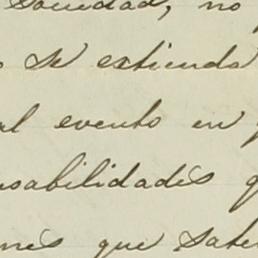 sociedad, no
se extienda
al evento en
sabilidades
nes que sate